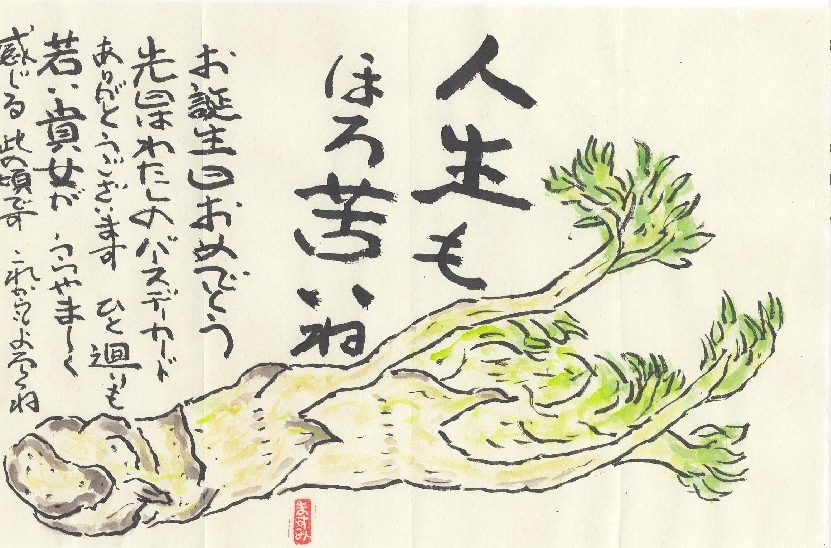 人生も
ほろ苦いね
お誕生日おめでとう
先日はわたしのバースデーカード
ありがとうございます ひと廻りも
若い貴女が うらやましく
感じる此の頃です これからもよろしくね
ますみ